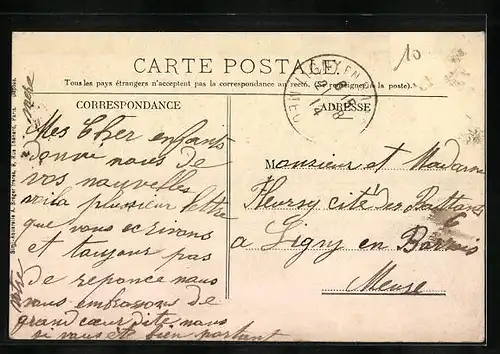 10
CARTE POSTALE
Tous les pays étrangers n'acceptent pas la correspondance au recto. (Se renseigner à la poste).
CORRESPONDANCE
ADRESSE
Mes Cher enfants
donné nous de
vos nouvelles
voila plusieur lettre
que vous ecrivons
et toujour pas
de reponce nous
vous embrassons de
grand cœur dite nous
si vous ete bien portant
votre
mere
Monsieur et Madame
Fleursy cité des Battants
a Ligny en Barrois
Meuse